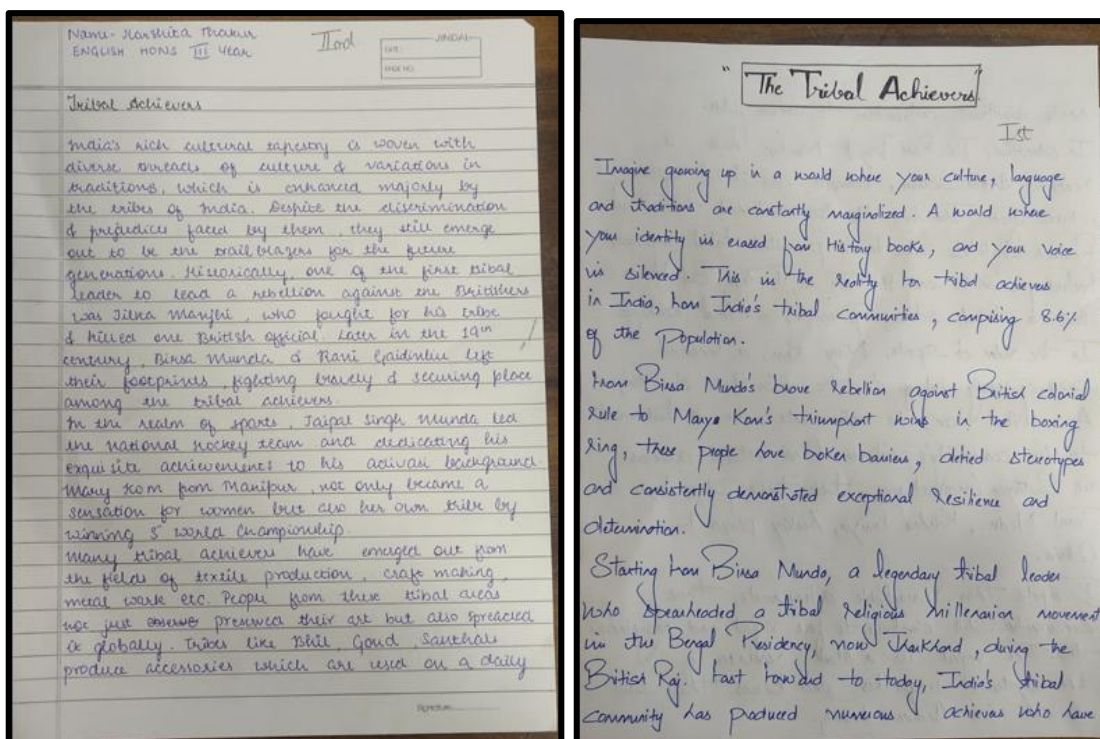 Name- Harshita Thakur
ENGLISH HONS III Year
IInd
JINDAL
DATE:
PAGE NO.
Tribal Achievers
India's rich cultural tapestry is woven with
diverse threads of culture & variations in
traditions, which is enhanced majorly by
the tribes of India. Despite the discrimination
& prejudices faced by them, they still emerge
out to be the trailblazers for the future
generations. Historically, one of the first tribal
leader to lead a rebellion against the Britishers
was Tilka Manjhi, who fought for his tribe
& killed one British official. Later in the 19th
century, Birsa Munda & Rani Gaidinliu left
their footprints, fighting bravely & securing place
among the tribal achievers.
In the realm of sports, Jaipal Singh Munda led
the national hockey team and dedicating his
exquisite achievements to his adivasi background.
Mary Kom from Manipur, not only became a
sensation for women but also her own tribe by
winning 5 world championship.
Many tribal achievers have emerged out from
the fields of textile production, craft making,
metal work etc. People from these tribal areas
not just preserved their art but also spreaded
it globally. Tribes like Bhil, Gond, Santhals
produce accessories which are used on a daily
Signature
"The Tribal Achievers"
Ist
Imagine growing up in a world where your culture, language
and traditions are constantly marginalized. A world where
your identity is erased from History books, and your voice
is silenced. This is the reality for tribal achievers
in India, from India's tribal communities, comprising 8.6%
of the Population.
From Birsa Munda's brave Rebellion against British colonial
rule to Marya Kom's triumphant wins in the boxing
ring, these people have broken barriers, defied stereotypes
and consistently demonstrated exceptional Resilience and
determination.
Starting from Birsa Munda, a legendary tribal leader
who spearheaded a tribal religious millenarian movement
in the Bengal Presidency, now Jharkhand, during the
British Raj. Fast forward to today, India's tribal
community has produced numerous achievers who have